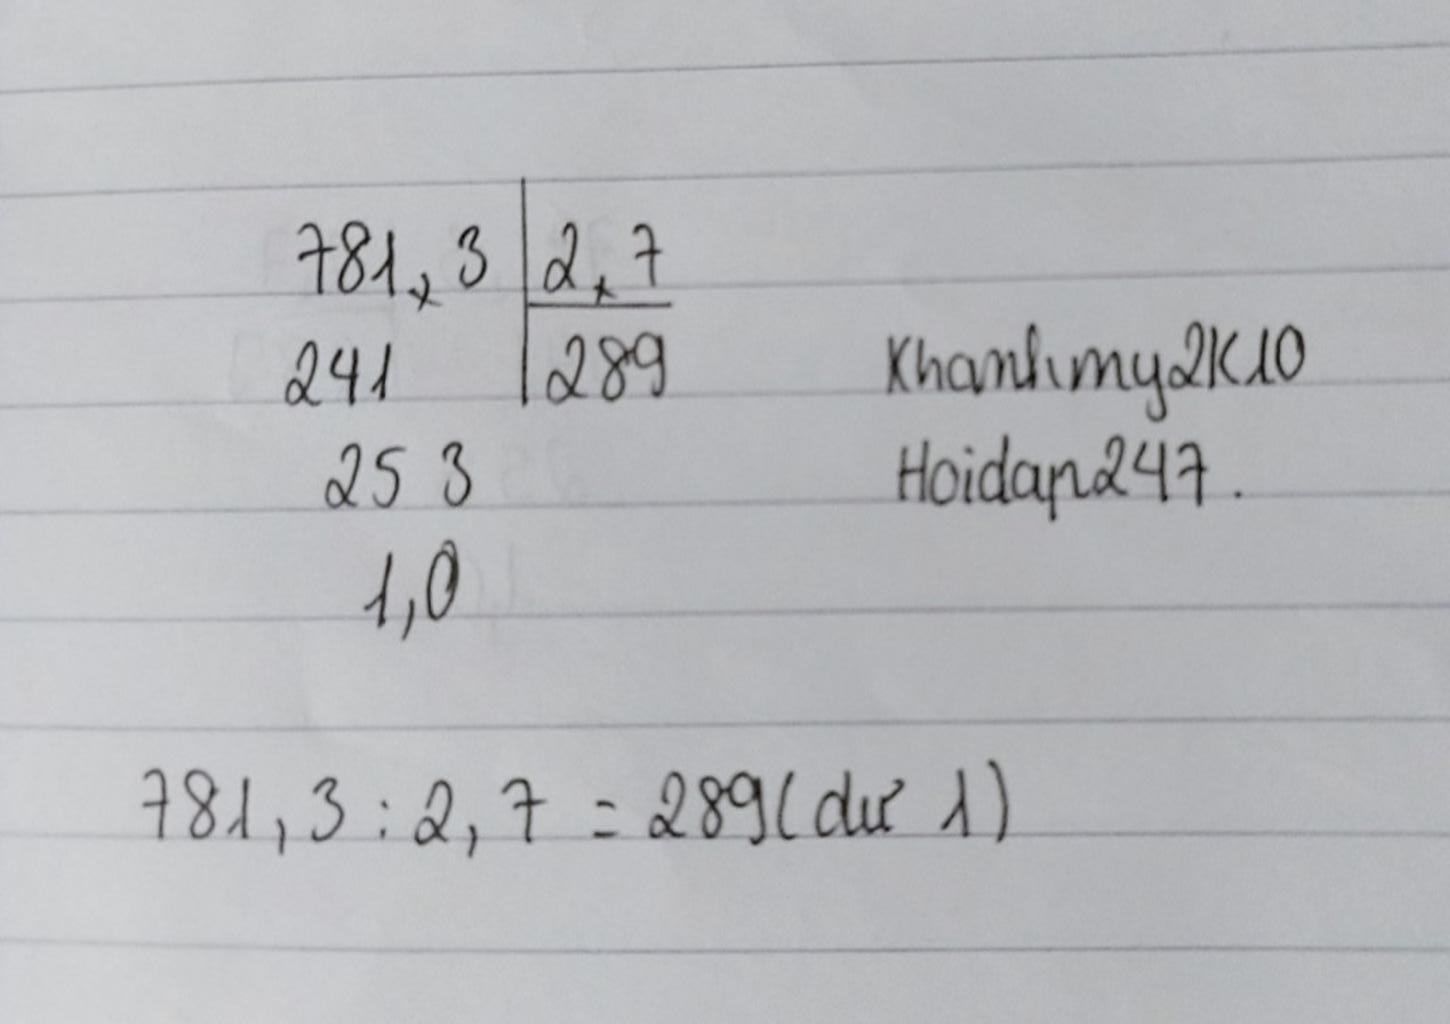 781,3 2,7
241 289
253
1,0
Khanhmy2K10
Hoidap247.
781,3 : 2,7 = 289 (dư 1)